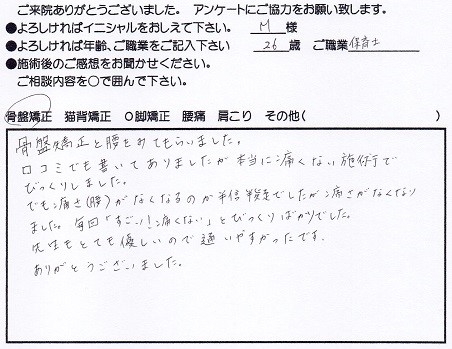 ご来院ありがとうございました。 アンケートにご協力をお願い致します。
●よろしければイニシャルをおしえて下さい。 M 様
●よろしければ年齢、ご職業をご記入下さい 26 歳 ご職業 保育士
●施術後のご感想をお聞かせください。
ご相談内容を○で囲んで下さい。
骨盤矯正 猫背矯正 O脚矯正 腰痛 肩こり その他( )
骨盤矯正と腰をみてもらいました。
口コミでも書いてありましたが本当に痛くない施術で
びっくりしました。
でも痛さ(腰)がなくなるのか半信半疑でしたが痛さがなくなり
ました。毎回「すごい!痛くない」とびっくりばかりでした。
先生もとても優しいので通いやすかったです。
ありがとうございました。